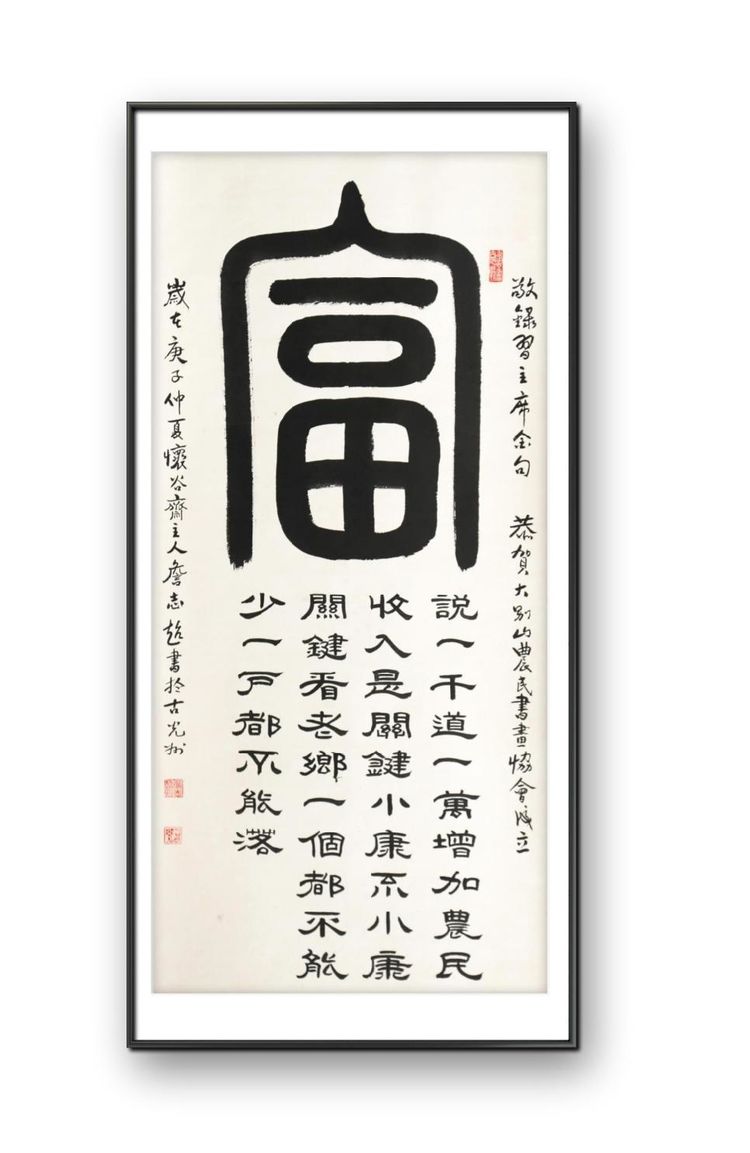 敬錄習主席金句 恭賀大別山農民書畫協會成立
富
説一千道一萬增加農民
收入是關鍵小康不小康
關鍵看老鄉一個都不能
少一戶都不能落
歲在庚子仲夏懷谷齋主人詹志超書於古光州